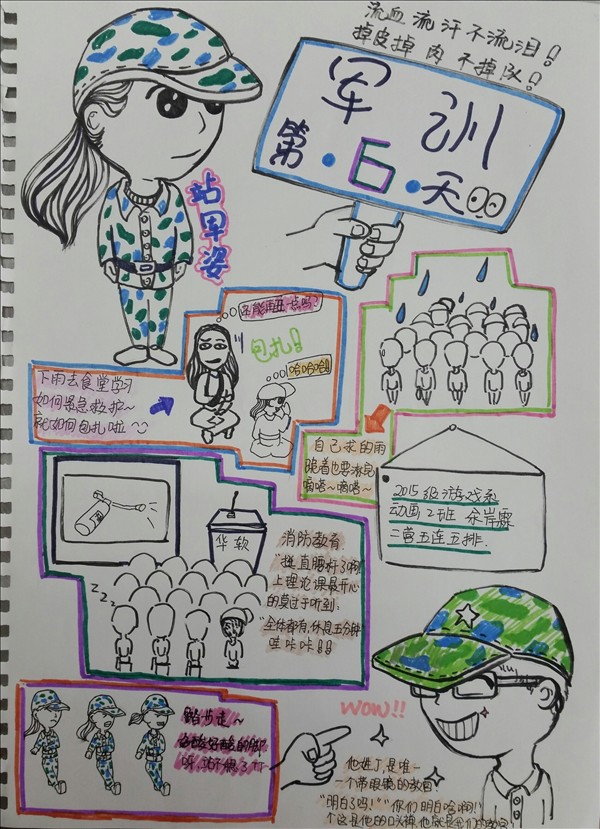 流血流汗不流泪!
掉皮掉肉不掉队!
军训
第·6·天
站军姿
还能再丑点吗?
包扎!
哈哈哈
下雨去食堂学习
如何紧急救护~
就如何包扎啦~
自己求的雨
跪着也要淋完
嘀嗒~嘀嗒~
2015级游戏系
动画2班
二营五连五排.
华软
消防教育.
"挺直腰杆了啊!
上理论课最开心
的莫过于听到.
"全体都有,休息五分钟
哇咔咔!!!
zzz
踏步走~
呀,站不稳了TT
wow!!
他姓丁,是唯一
一个带眼镜的教官
"明白了吗!""你们明白啥啊!"
个这是他的口头禅,他就是我们的教官!